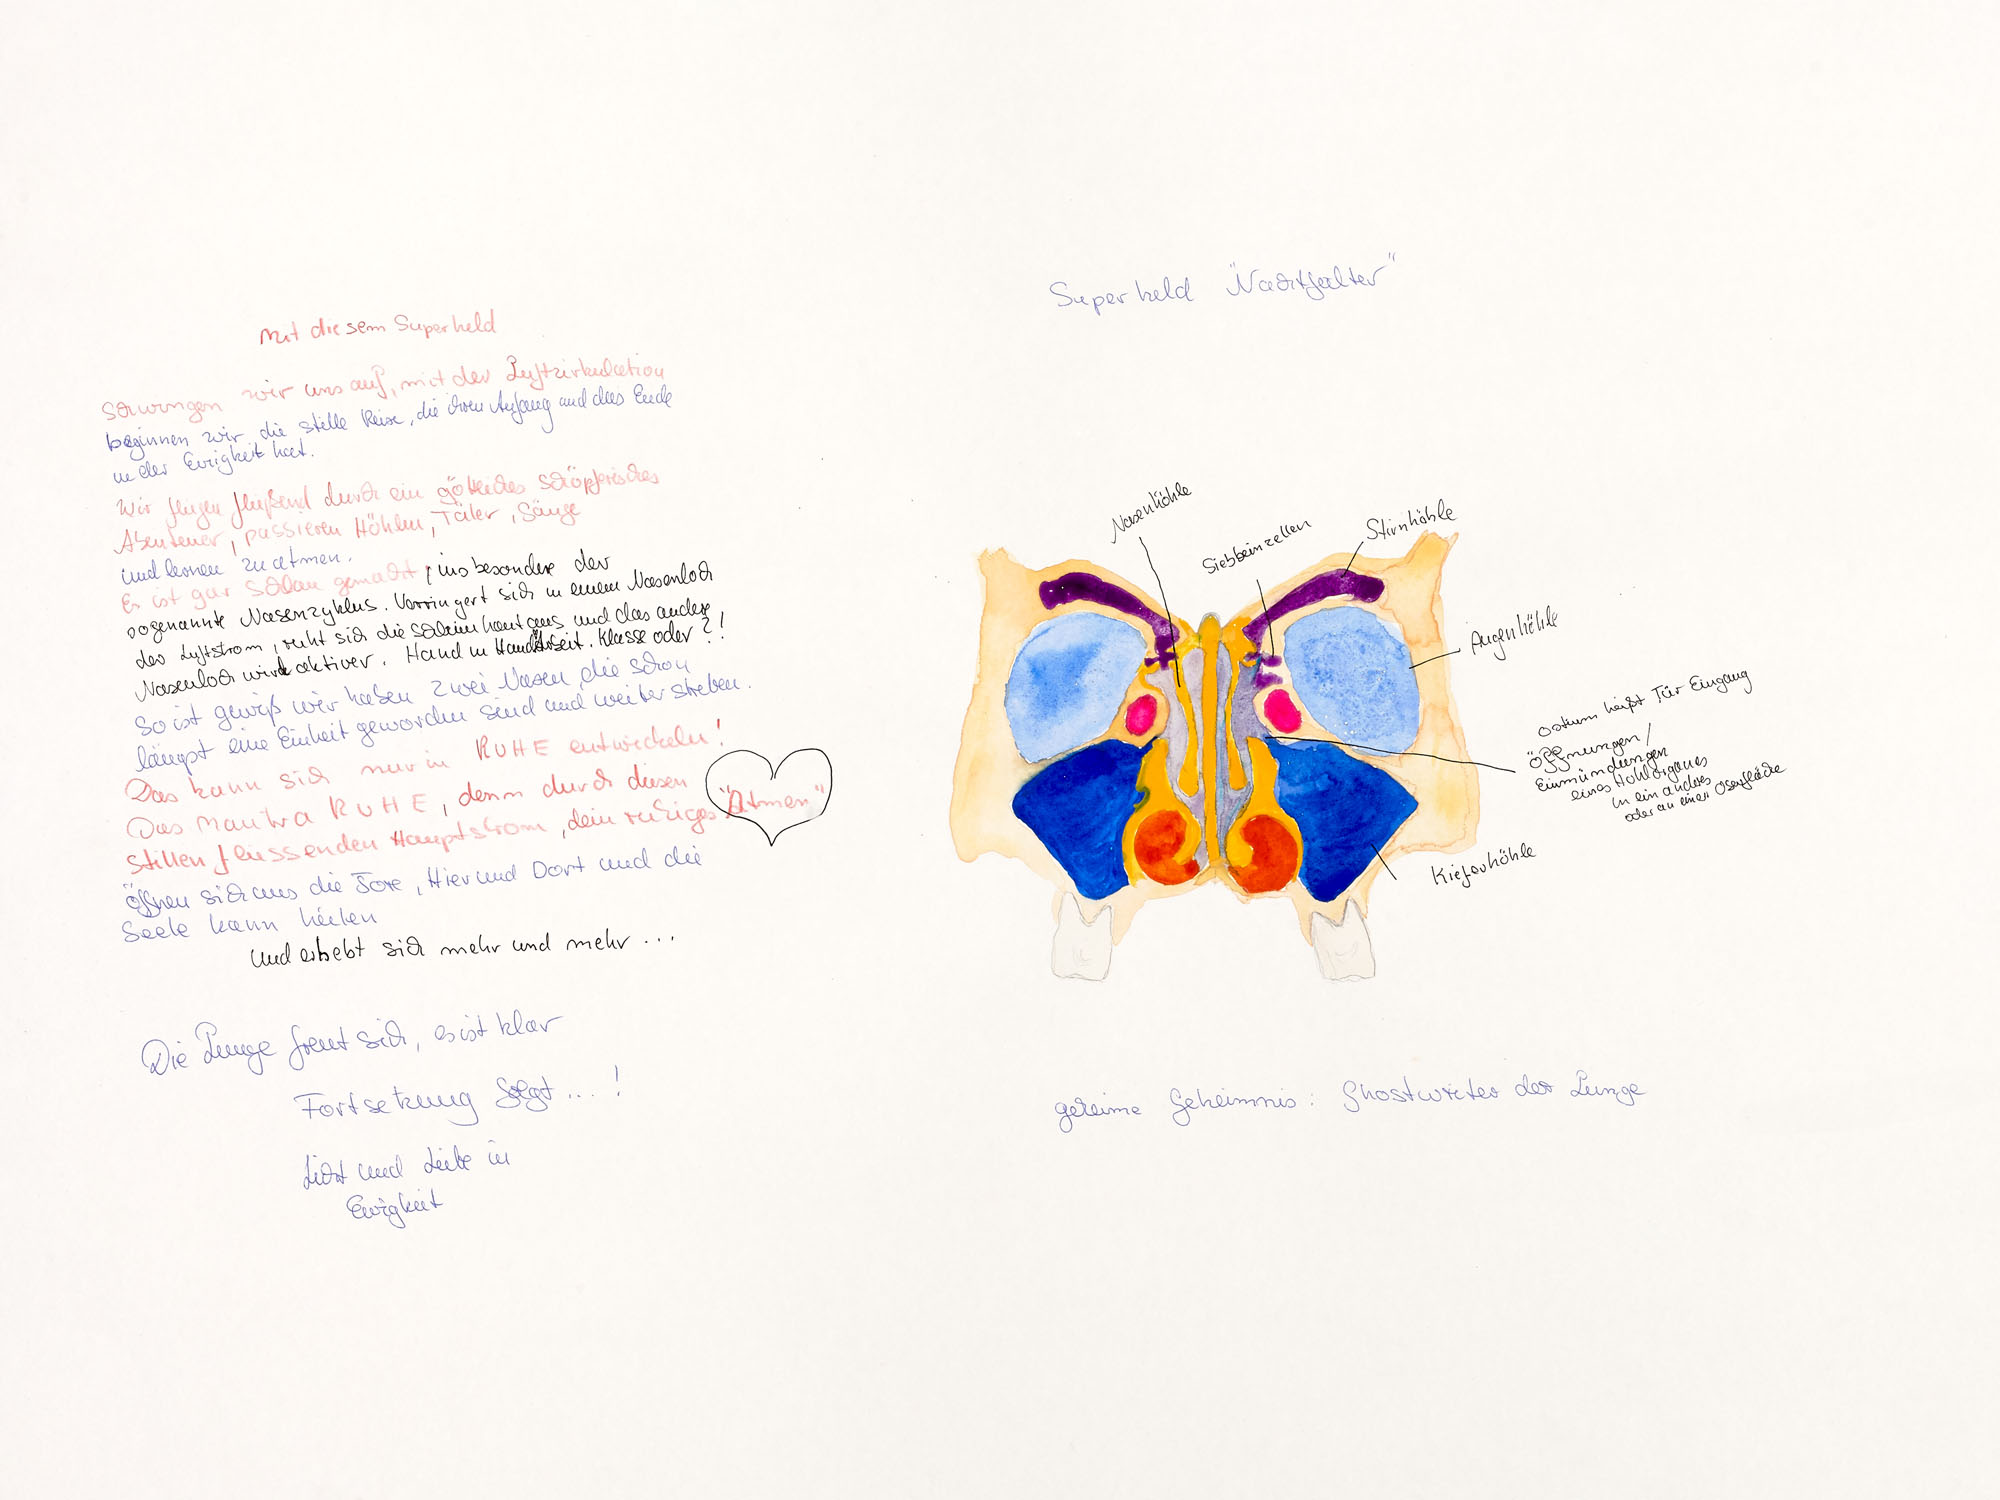 Mit diesem Superheld
schwingen wir uns auf, mit der Luftzirkulation
beginnen wir die stille Reise, die ihren Anfang und das Ende
in der Ewigkeit hat.
Wir fließend durch ein göttliches schöpferisches
Abenteuer, passieren Höhlen, Täler, Gänge
und lernen zu atmen.
Er ist gar schlau gemacht, insbesondere der
sogenannte Nasenzyklus. Verringert sich in einem Nasenloch
der Luftstrom, ruht sich die Schleimhaut aus und das andere
Nasenloch wird aktiver. Hand in Hand Arbeit. Klasse oder?!
So ist gewiß wir haben zwei Nasen, die schon
längst eine Einheit geworden sind und weiter streben.
Das kann sich nur in RUHE entwickeln!
Das Mantra RUHE, denn durch diesen
stillen flussenden Hauptstrom, dein ruhiges "Atmen"
öffnen sich uns die Tore, Hier und Dort und die
Seele kann heilen
und erhebt sich mehr und mehr ...
Die Lunge freut sich, es ist klar
Fortsetzung folgt ....!
Licht und Liebe in
Ewigkeit
Superheld "Nachtfalter"
Nasenhöhle
Siebbeinzellen
Stirnhöhle
Augenhöhle
ostium heißt Tür Eingang
Öffnungen /
Einmündungen
eines Hohlorganes
in ein anderes
oder an einer Oberfläche
Kieferhöhle
geheime Geheimnis: Ghostwriter der Lunge